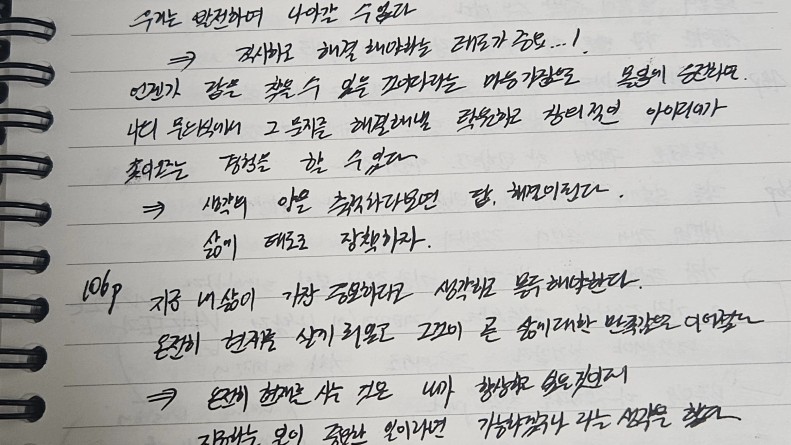 우리는 발전하며 나아갈 수 있다
⇒ 직시하고 해결해야하는 태도가 중요...!
언젠가 답을 찾을 수 있을 것이다라는 마음가짐으로 몰입에 도전하면.
나의 무의식에서 그 문제를 해결해낼 독특하고 창의적인 아이디어가
솟아오르는 경험을 할 수 있다
⇒ 생각의 양을 축적하다보면 답, 해결이 된다.
삶에 태도로 장착하자.
106p 지금 내 삶이 가장 중요하다고 생각하고 몰두해야한다.
온전히 현재를 살기 위함이고 그것이 곧 삶에 대한 만족감으로 이어진다
⇒ 온전히 현재를 사는 것은 내가 항상하고 싶은 것인데
일이라면 가능하겠구나 라는 생각을 한다